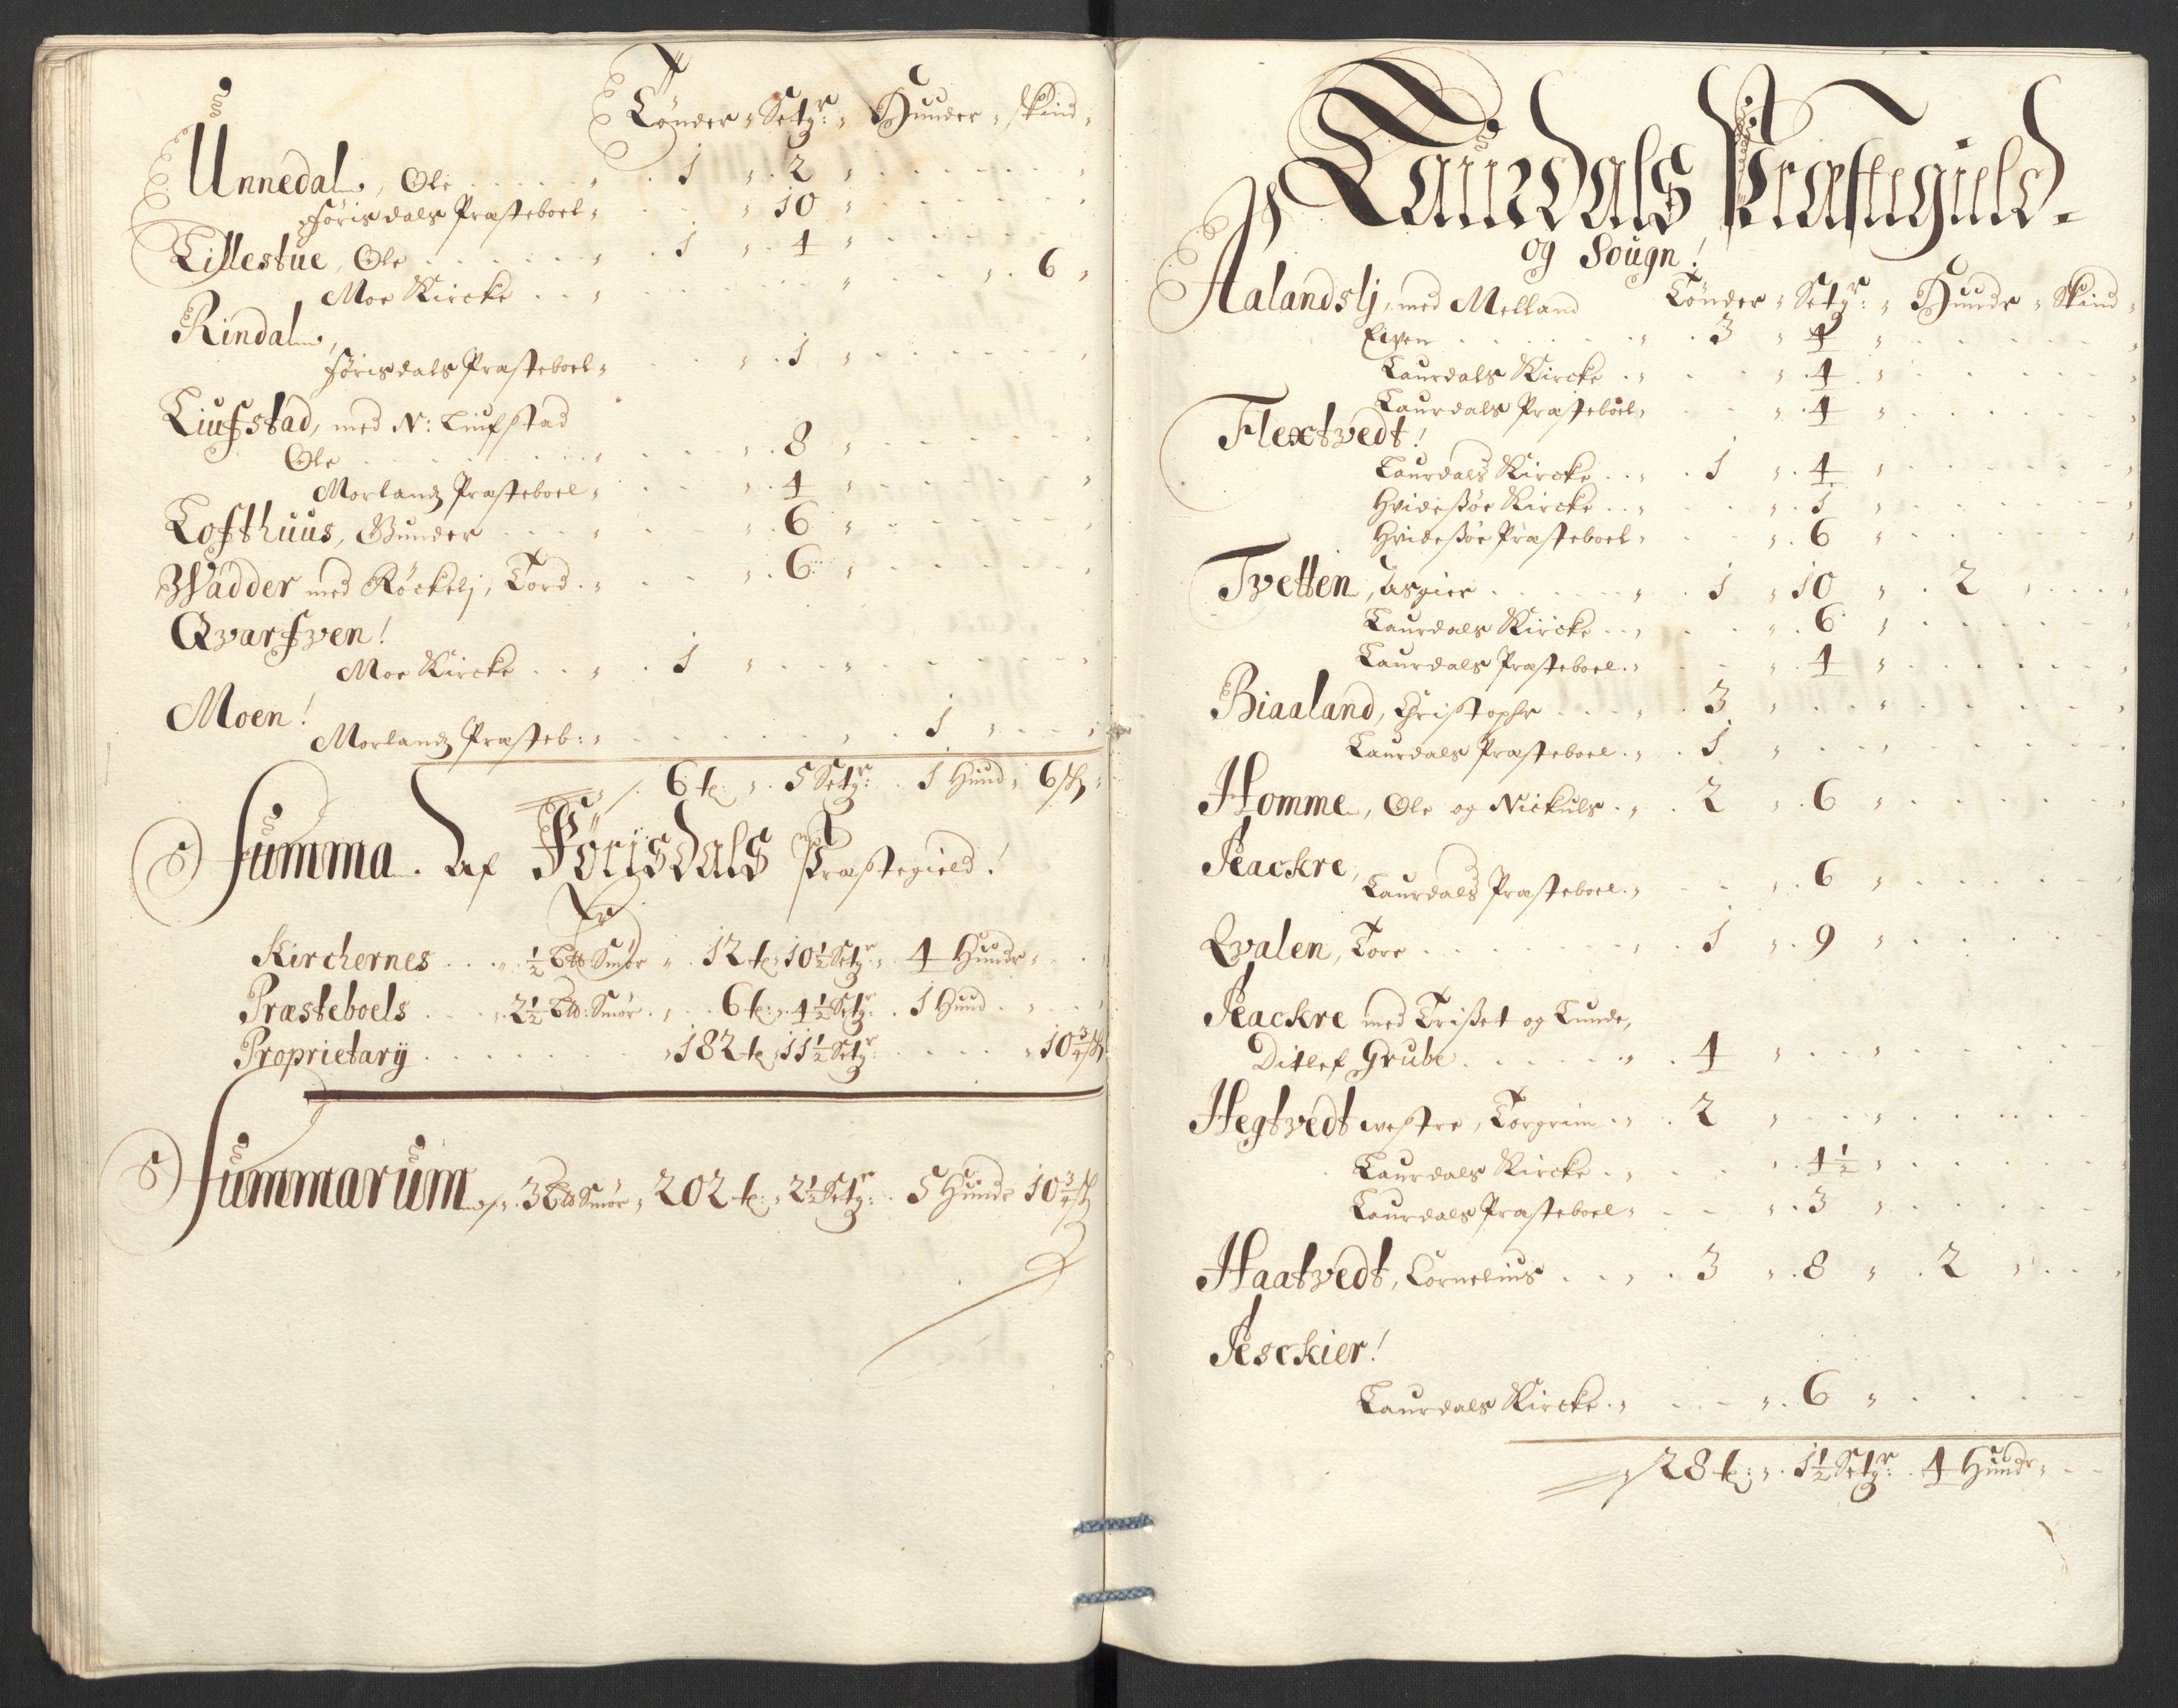 Tønder „ Setgr: „ Hunder „ skind „
Unnedal, Ole . . . „ . 1 „ . 2 „
Førisdals Præsteboel „ . . „ 10 „
Lillestue, Ole . . . „ . 1 „ . 4 „
Moe Kircke . . „ . . . „ . . „ . 6 „
Rindal,
Førisdals Præsteboel „ . . „ . 1 „
Liufstad, med N: Liufstad
Ole . . . „ . . „ . 8 „
Morlandz Præsteboel „ . . „ . 4 „
Lofthuus, Gunder . . . „ . . „ . 6 „
Wadder med Røckelj, Tord . „ . . „ . 6 „
Qvarfven!
Moe Kircke . . „ . 1 „ . . „
Moen!
Morlandz Præsteb: „ . . . „ . 1 „ . . „
6 t: „ . 5 Setgr: . 1 Hund „ 6 sk „
Summa. Af Førisdals Præstegield!
Kirchernes . . „ ½ Btd Smør „ . 12 t: 10½ Setgr „ 4 Hunde „
Præsteboels . . . „ 2½ Btd: Smør . „ . 6 t: „ 4½ Setgr: . 1 Hund
Proprietarij . . . „ 182 t „ 11½ Setgr: . . . „ 10¾ sk
Summarum „ 3 Btd Smør „ 202 t: „ 2½ Setgr: . 5 Hunde 10¾ sk
Laurdals Præstegield
og Sougn!
Aalandslj, med Melland Tønder „ Setgr: „ Hunde „ Skind „
Even . . . „ . 3 „ 4 „
Laurdals Kircke . „ . . „ . 4 „
Laurdals Præsteboel „ . . „ . 4 „
Flextvedt!
Laurdals Kircke . . „ . 1 „ . 4 „
Hvidesøe Kircke . . „ . . „ . 1 „
Hvidesøe Præsteboel „ . . „ . 6 „
Tvetten, Asgier . . . „ . 1 „ 10 „ . 2 „
Laurdals Kircke . . „ . . „ . 6 „
Laurdals Præsteboel . „ . . „ . 4 „
Biaaland, Christopher . . . „ . 3 „ . . „
Laurdals Præsteboel . „ . 1 „ . . „
Homme, Ole og Nickuls . „ . 2 „ . 6 „
Aackre,
Laurdals Præsteboel . „ . . „ . 6 „
Qvalen, Tore . . . „ . 1 „ . 9 „
Aackre med Trisset og Lunde,
Ditlef Grube . . . „ . 4 „ . . „
Hegtvedt westre, Torgrim . „ . 2 „ . . „
Laurdals Kircke . „ . . „ . 4½ „
Laurdals Præsteboel „ . . „ . 3 „
Haatvedt, Cornelius . . „ . 3 „ . 8 „ . 2 „
Aesckier!
Laurdals Kircke . „ . . „ . 6 „
28 t: „ . 1½ Setgr: . 4 Hunde „